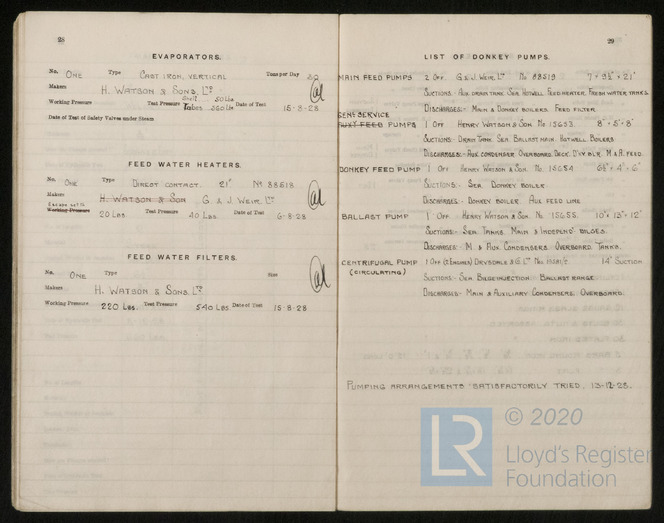 28
EVAPORATORS.
No. ONE Type CAST IRON, VERTICAL Tons per Day 20
Makers H. WATSON & SONS, LTD
Working Pressure Test Pressure Shell 50 Lbs Tubes 350 Lbs Date of Test 15-8-28
Date of Test of Safety Valves under Steam
FEED WATER HEATERS.
No. ONE Type DIRECT CONTACT. 21" No 88518
Makers H. WATSON & SON G. & J. WEIR. LTD
Working Pressure 20 Lbs Test Pressure 40 Lbs Date of Test 6-8-28
FEED WATER FILTERS.
No. ONE Type Size
Makers H. WATSON & SONS. LTD
Working Pressure 220 Lbs Test Pressure 540 Lbs Date of Test 15-8-28
29
LIST OF DONKEY PUMPS.
MAIN FEED PUMPS 2 OFF G. & J. WEIR. LTD No 88519 7" × 9½" × 21"
SUCTIONS:- AUX. DRAIN TANK. SEA. HOTWELL. FEED HEATER. FRESH WATER TANKS.
DISCHARGES:- MAIN & DONKEY BOILERS. FEED FILTER.
GENL SERVICE
AUXY FEED PUMPS 1 OFF HENRY WATSON & SON. No 15653. 8" × 5" × 8"
SUCTIONS:- DRAIN TANK. SEA. BALLAST MAIN. HOTWELL. BOILERS
DISCHARGES:- AUX. CONDENSER. OVERBOARD. DECK. D'KY BLR. M & A. FEED.
DONKEY FEED PUMP 1 OFF HENRY WATSON & SON. No 15654 × 4" × 6"
SUCTIONS:- SEA. DONKEY BOILER.
DISCHARGES:- DONKEY BOILER. AUX. FEED LINE.
BALLAST PUMP 1 OFF HENRY WATSON & SON. No 15655. 10" × 13" × 12"
SUCTIONS:- SEA. TANKS. MAIN & INDEPENDT BILGES.
DISCHARGES:- M. & AUX. CONDENSERS. OVERBOARD. TANKS.
CENTRIFUGAL PUMP 1 OFF DRYSDALE & Co LTD 14" SUCTION
(CIRCULATING) SUCTIONS:- SEA. BILGE INJECTION. BALLAST RANGE.
DISCHARGES:- MAIN & AUXILIARY CONDENSERS. OVERBOARD.
PUMPING ARRANGEMENTS SATISFACTORILY TRIED. 13-12-28.
© 2020
LR
Lloyd's Register
Foundation